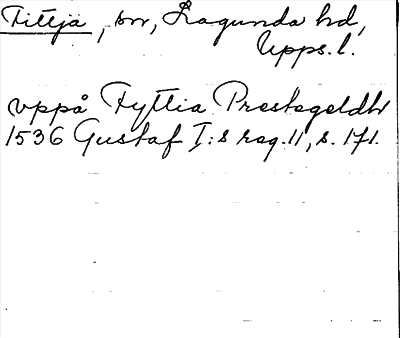 Fittja, sn, Lagunda hd,
Upps. l.
vppå Fyttia Prestegeldh
1536 Gustaf I:s reg. 11, s. 171.